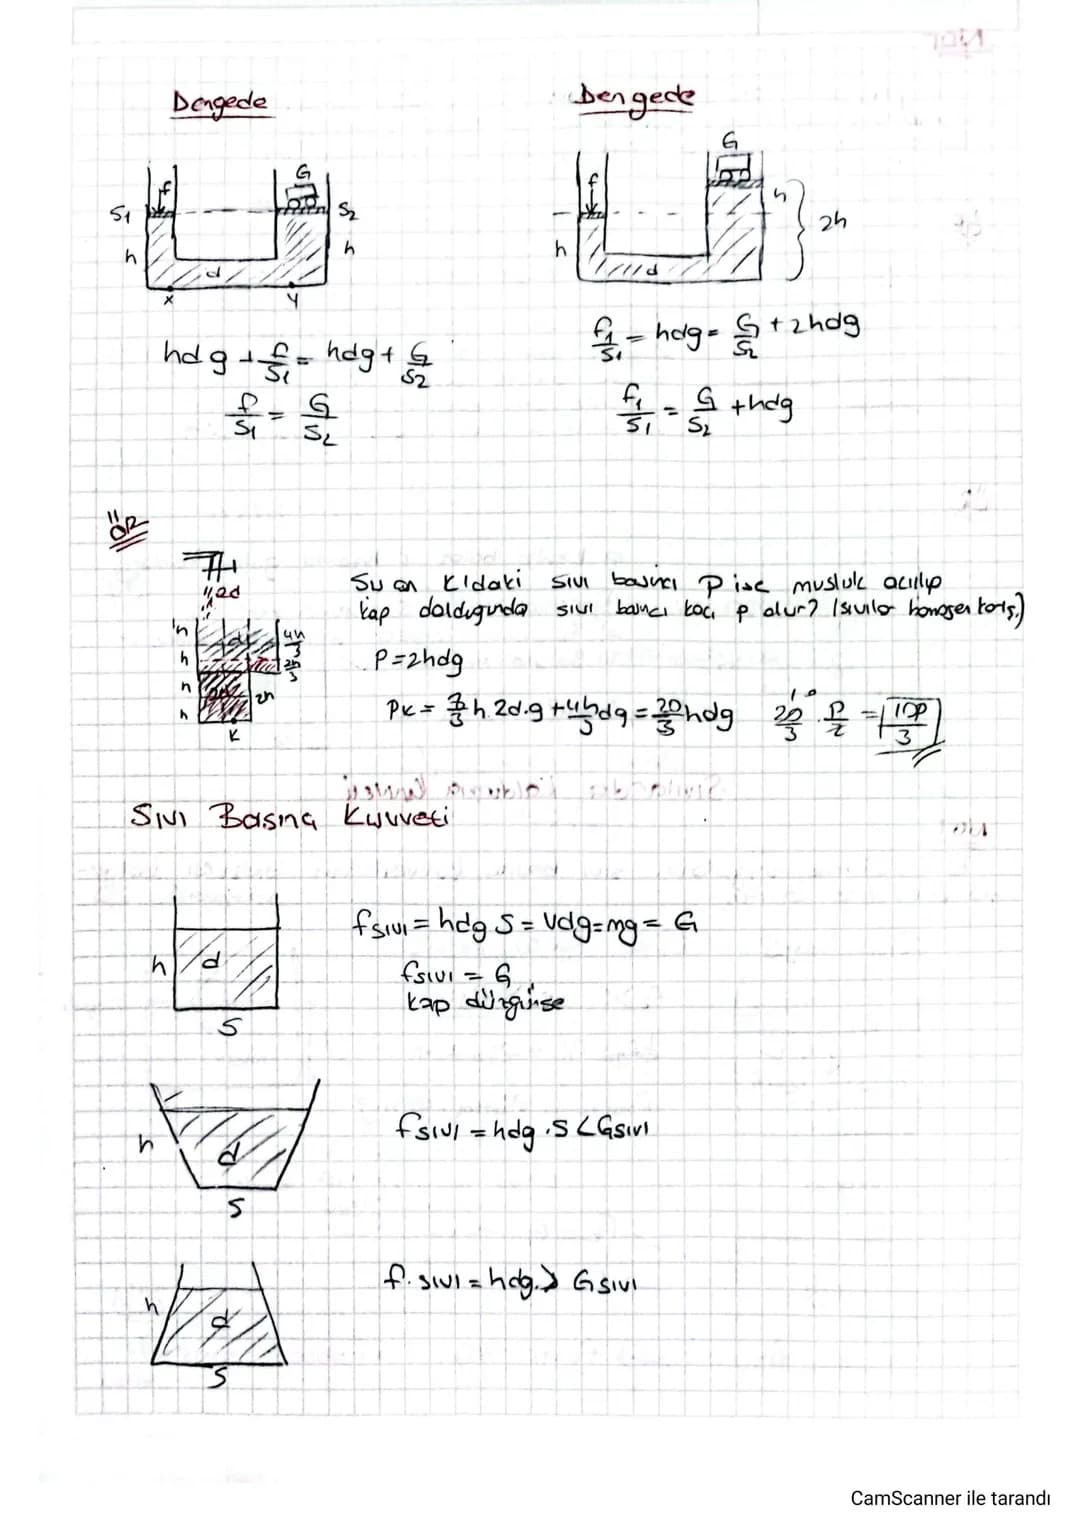 Dengede
Dengede
S1 f G S2
h d h
x y
f G
h d h 2h
hdg + f/S1 = hdg + G/S2
f/S1 = G/S2
f1/S1 = hdg = G/S2 + 2hdg
f1/S1 = G/S2 + hdg
ÖR
2d
h d 4h/3
h 2h/3
h 2h
h
K
Şu an K'daki sıvı basıncı P ise musluk açılıp
kap dolduğunda sıvı basıncı kaç p olur? (sıvılar homojen karış.)
P=2hdg
PK = h.2d.g + 4h/3 dg = 20/3 hdg 20/3 . P/2 = 10P/3
Sıvı Basınç Kuvveti
fsıvı = hdg S = Vdg = mg = G
fsıvı = G
kap düzgünse
h d
S
fsıvı = hdg .S < Gsıvı
h d
S
f. sıvı = hdg. > Gsıvı
h d
S
CamScanner ile tarandı